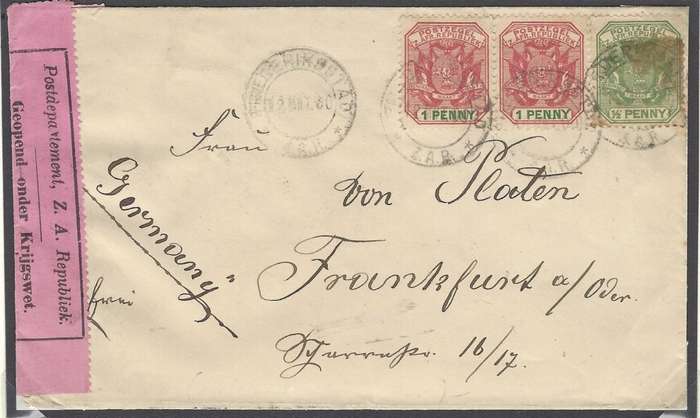 Postdepartement, Z. A. Republiek.
Geopend onder Krijgswet.
POSTZEGEL
Z. AFR. REPUBLIEK
1 PENNY
POSTZEGEL
Z. AFR. REPUBLIEK
1 PENNY
POSTZEGEL
Z. AFR. REPUBLIEK
½ PENNY
Z.A.R.
Z.A.R.
Z.A.R.
Z.A.R.
Frau
von Platen
Germany
Frankfurt a/Oder.
frei
16/17.